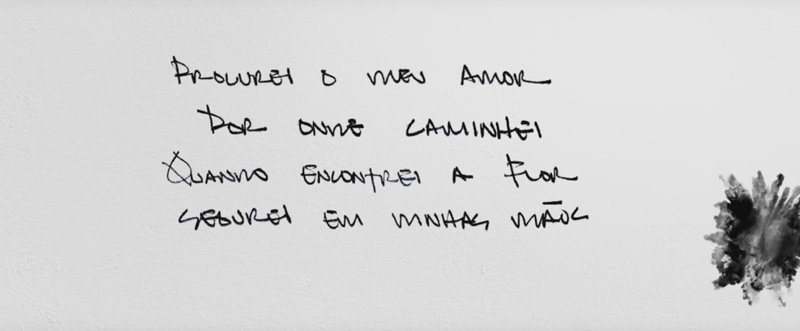 PROCUREI O MEU AMOR
POR ONDE CAMINHEI
QUANDO ENCONTREI A FLOR
SEGUREI EM MINHAS MÃOS